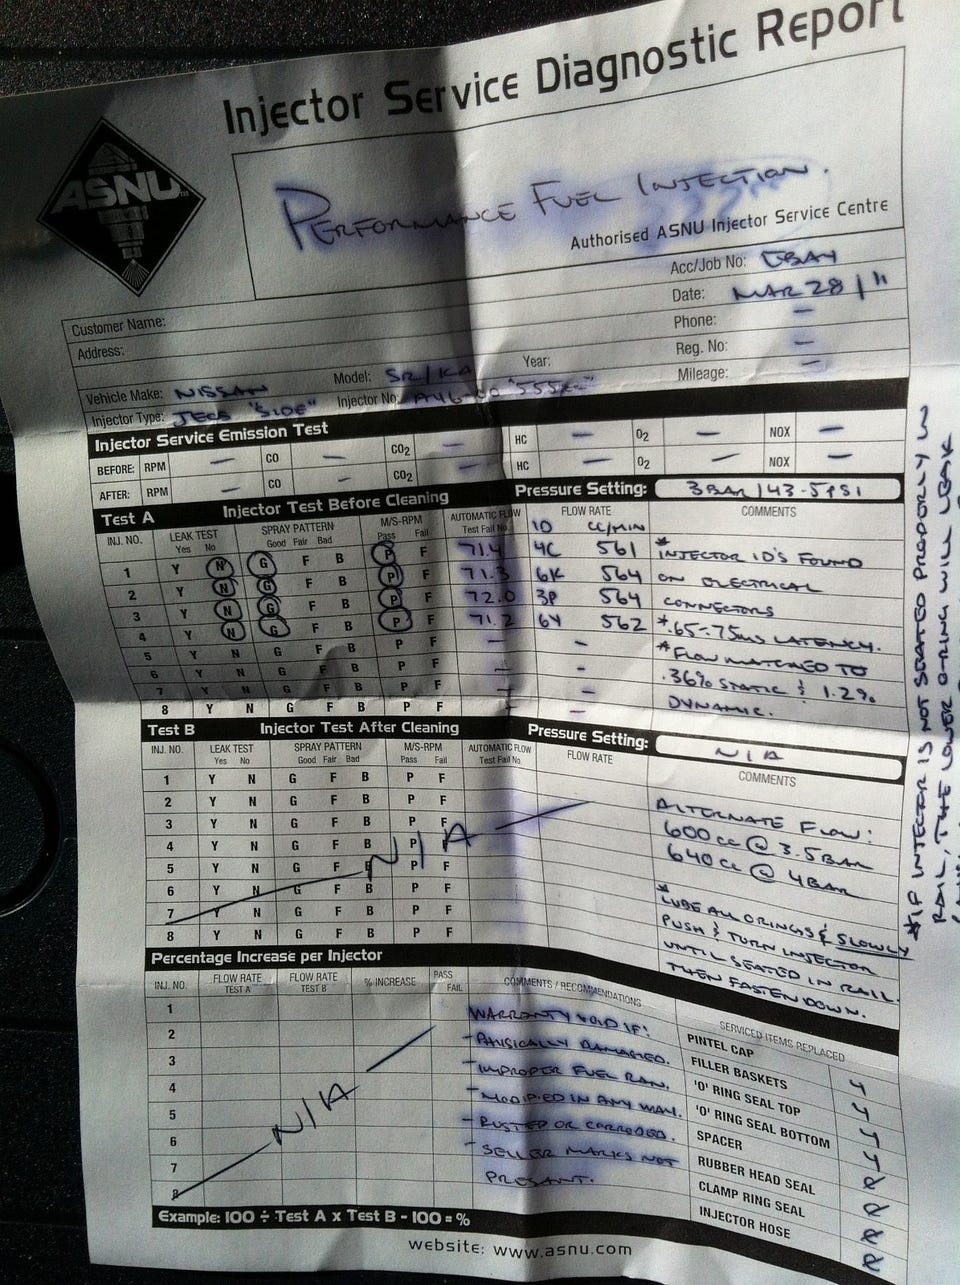 Injector Service Diagnostic Report
ASNU
PERFORMANCE FUEL INJECTION.
Authorised ASNU Injector Service Centre
Acc/Job No: EBAY
Date: MAR 28/11
Customer Name:
Phone: -
Address:
Reg. No: -
Vehicle Make: NISSAN Model: SR/KA Year: Mileage: -
Injector Type: JECS "SIDE" Injector No: A46-00 "555cc"
Injector Service Emission Test
BEFORE: RPM - CO - CO2 - HC - O2 - NOX -
AFTER: RPM - CO - CO2 - HC - O2 - NOX -
Test A Injector Test Before Cleaning Pressure Setting: 3BAR/43.5PSI
INJ. NO. LEAK TEST SPRAY PATTERN M/S-RPM AUTOMATIC FLOW FLOW RATE COMMENTS
Yes No Good Fair Bad Pass Fail Test Fail No. ID CC/MIN
1 Y N G F B P F 71.4 4C 561
2 Y N G F B P F 71.3 6K 564
3 Y N G F B P F 72.0 3P 564
4 Y N G F B P F 71.2 6Y 562
5 Y N G F B P F - -
6 Y N G F B P F - -
7 Y N G F B P F - -
8 Y N G F B P F - -
* INJECTOR ID'S FOUND
ON ELECTRICAL
CONNECTORS
*.65-.75ms LATENCY.
* FLOW MATCHED TO
.36% STATIC & 1.2%
DYNAMIC.
Test B Injector Test After Cleaning Pressure Setting: N/A
INJ. NO. LEAK TEST SPRAY PATTERN M/S-RPM AUTOMATIC FLOW FLOW RATE COMMENTS
Yes No Good Fair Bad Pass Fail Test Fail No.
1 Y N G F B P F
2 Y N G F B P F
3 Y N G F B P F
4 Y N G F B P F
5 Y N G F B P F
6 Y N G F B P F
7 Y N G F B P F
8 Y N G F B P F
N/A
ALTERNATE FLOW:
600cc @ 3.5BAR
640cc @ 4BAR
*
LUBE ALL ORINGS & SLOWLY
PUSH & TURN INJECTOR
UNTIL SEATED IN RAIL.
THEN FASTEN DOWN.
* IF INJECTOR IS NOT SEATED PROPERLY IN
RAIL, THE LOWER O-RING WILL LEAK
Percentage Increase per Injector
INJ. NO. FLOW RATE TEST A FLOW RATE TEST B % INCREASE PASS FAIL COMMENTS / RECOMMENDATIONS
1
2
3
4
5
6
7
8
N/A
WARRANTY VOID IF:
- PHYSICALLY DAMAGED.
- IMPROPER FUEL RAN.
- MODIFIED IN ANY WAY.
- RUSTED OR CORRODED.
- SELLER MARKS NOT
PRESANT.
SERVICED ITEMS REPLACED
PINTEL CAP 4
FILLER BASKETS 4
'O' RING SEAL TOP 4
'O' RING SEAL BOTTOM 4
SPACER
RUBBER HEAD SEAL
CLAMP RING SEAL
INJECTOR HOSE
Example: 100 ÷ Test A x Test B - 100 = %
website: www.asnu.com